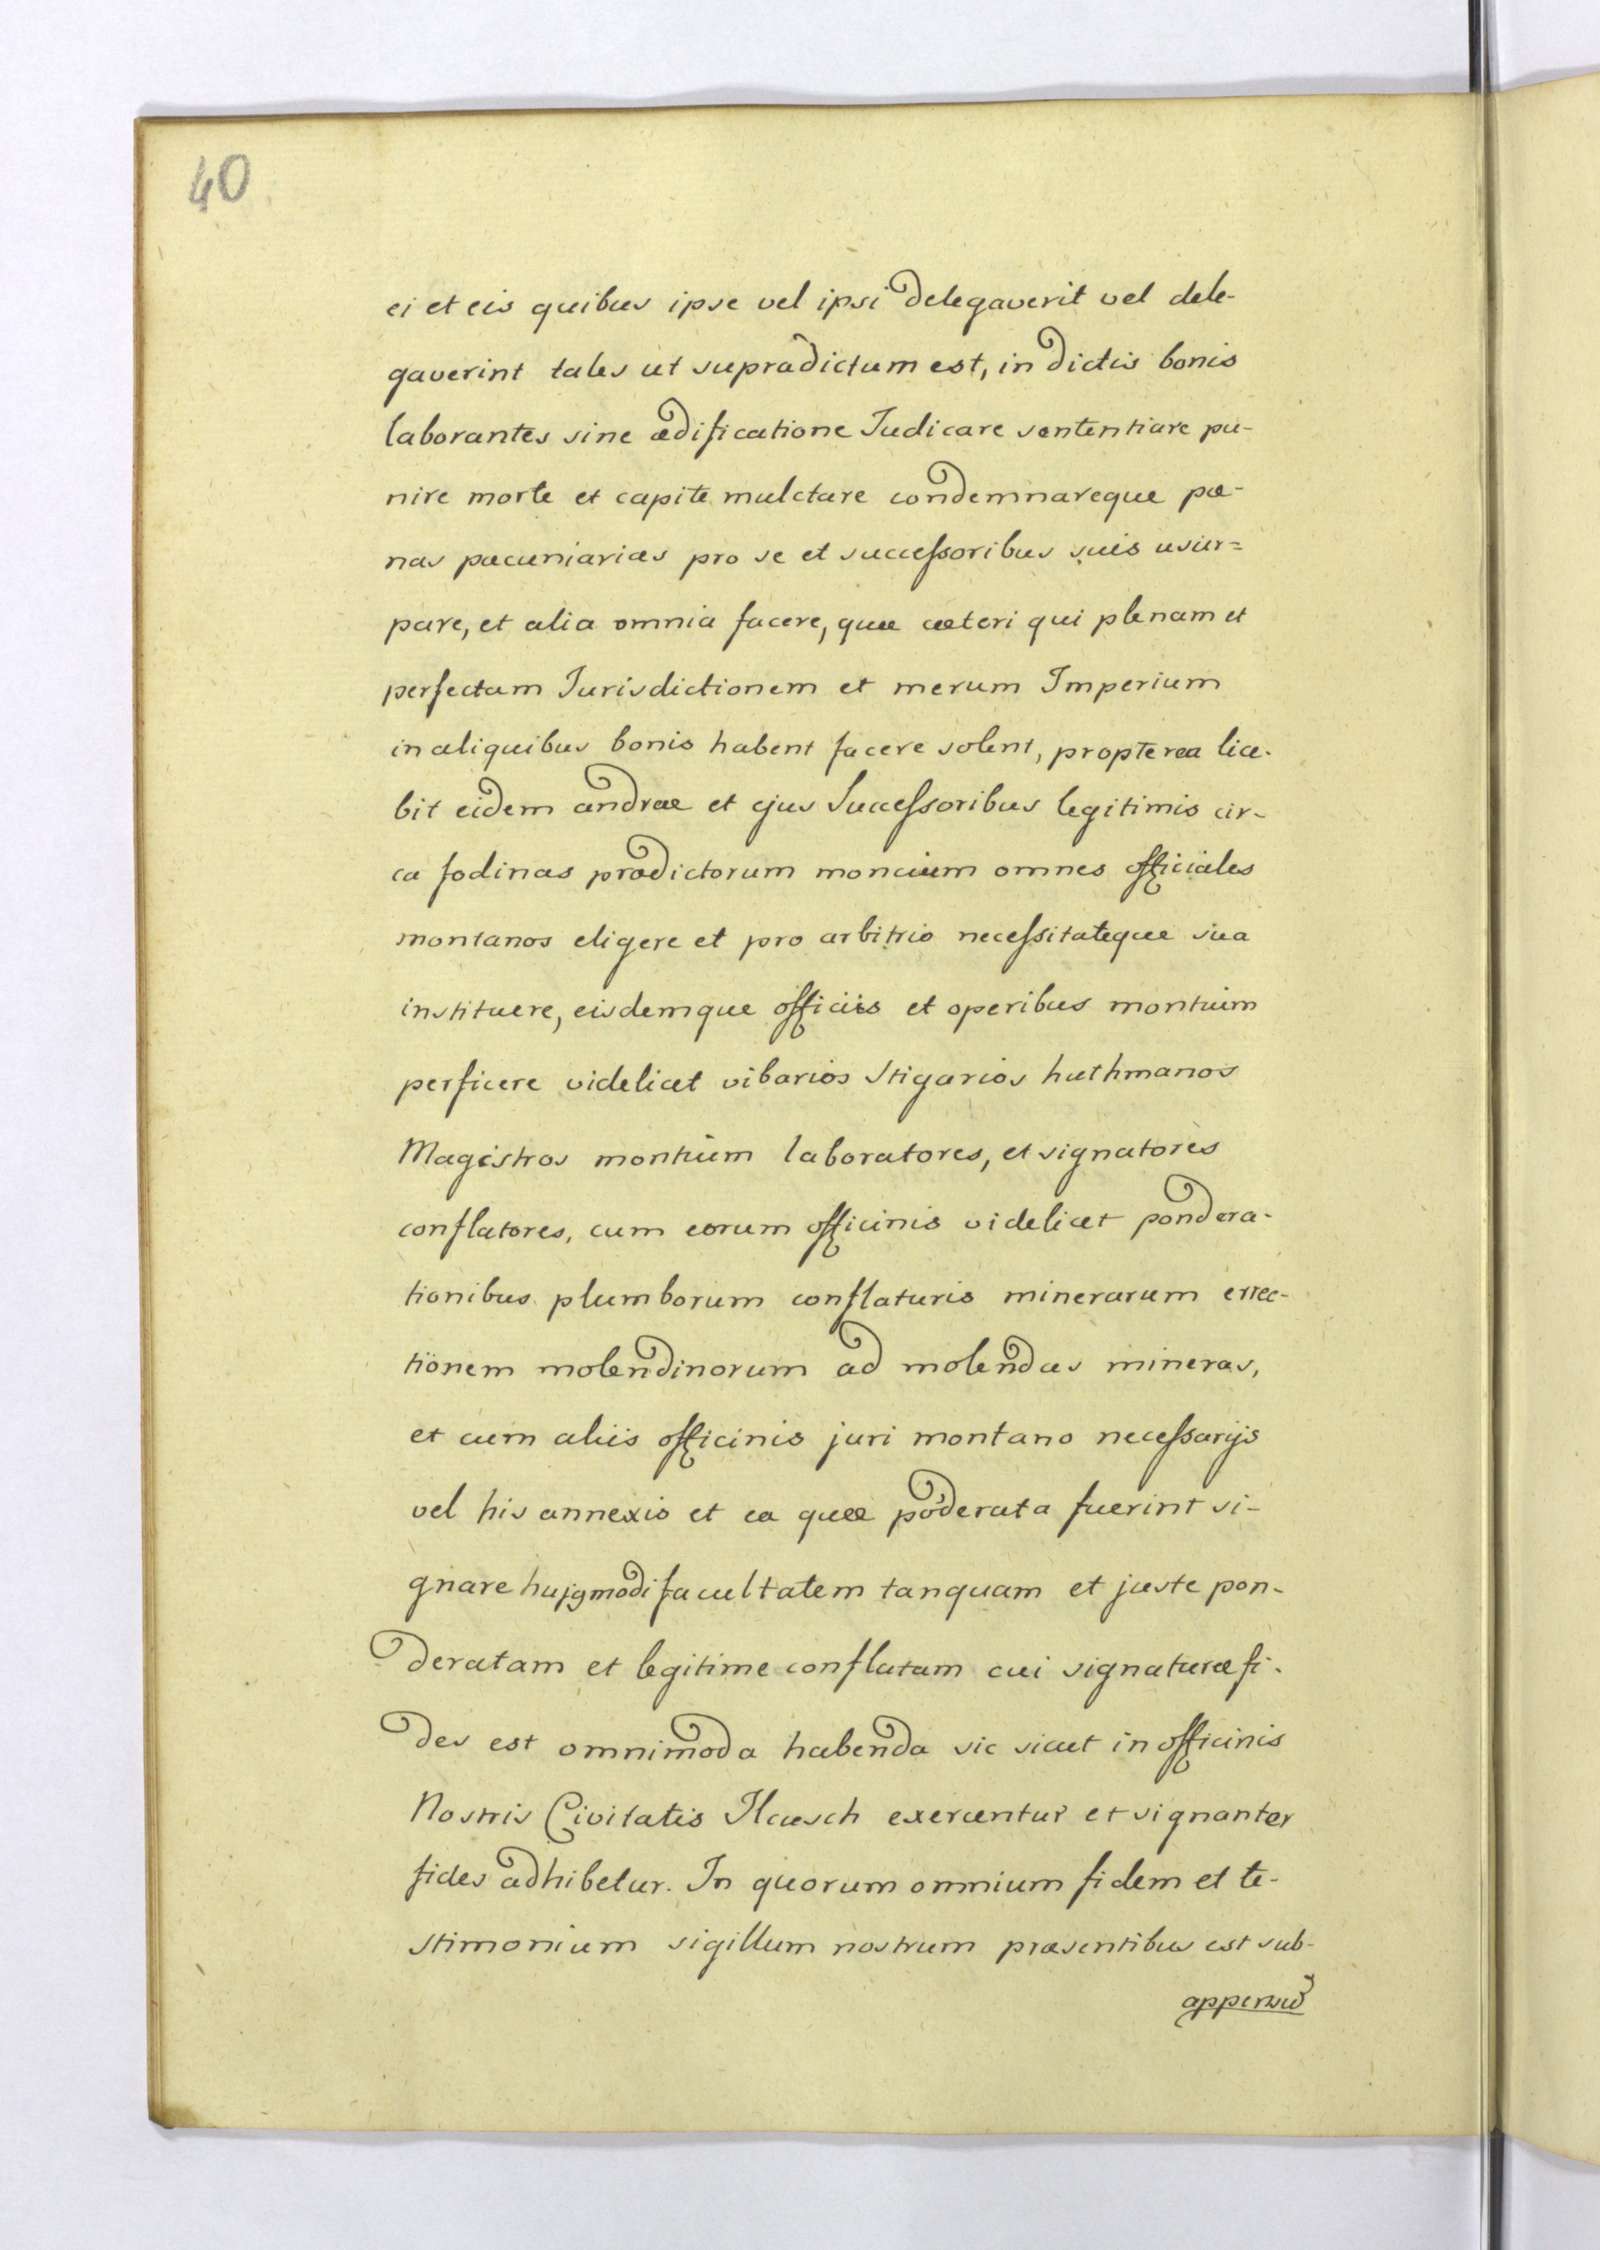 40
ei et eis quibus ipse vel ipsi delegaverit vel dele-
gaverint tales ut supradictum est, in dictis bonis
laborantes sine ædificatione Judicare sententiare pu-
nire morte et capite mulctare condemnareque pæ-
nas pæcuniarias pro se et successoribus suis usur=
pare, et alia omnia facere, quæ cæteri qui plenam et
perfectam Jurisdictionem et merum Imperium
in aliquibus bonis habent facere solent, propterea lice-
bit eidem andræ et ejus Successoribus legitimis cir-
ca fodinas prædictorum moncium omnes officiales
montanos eligere et pro arbitrio necessitateque sua
instituere, eisdemque officiis et operibus montium
perficere videlicet vibarios Stigarios huthmanos
Magistros montium laboratores, et signatores
conflatores, cum eorum officinis videlicet pondera-
tionibus plumborum conflaturis minerarum errec-
tionem molendinorum ad molendas mineras,
et cum aliis officinis juri montano necessarijs
vel his annexis et ea quæ pōderata fuerint si-
gnare hujgmodi facultatem tanquam et juste pon-
deratam et legitime conflatam cui signaturæ fi-
des est omnimoda habenda sic sicut in officinis
Nostris Civitatis Ilcusch exercentur et signanter
fides adhibetur. In quorum omnium fidem et te-
stimonium sigillum nostrum præsentibus est sub-
appensū